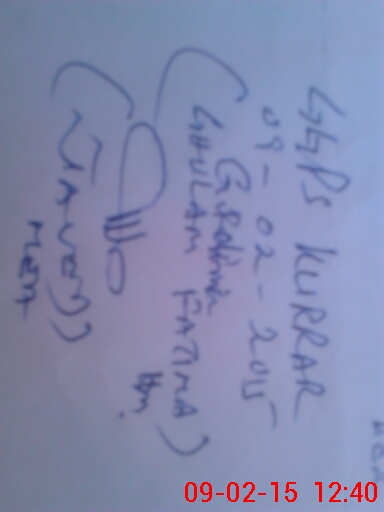 GGPS KURRAR
09-02-2015
GHULAM FATIMA)
Hm
(JAVED))
MEA
09-02-15 12:40